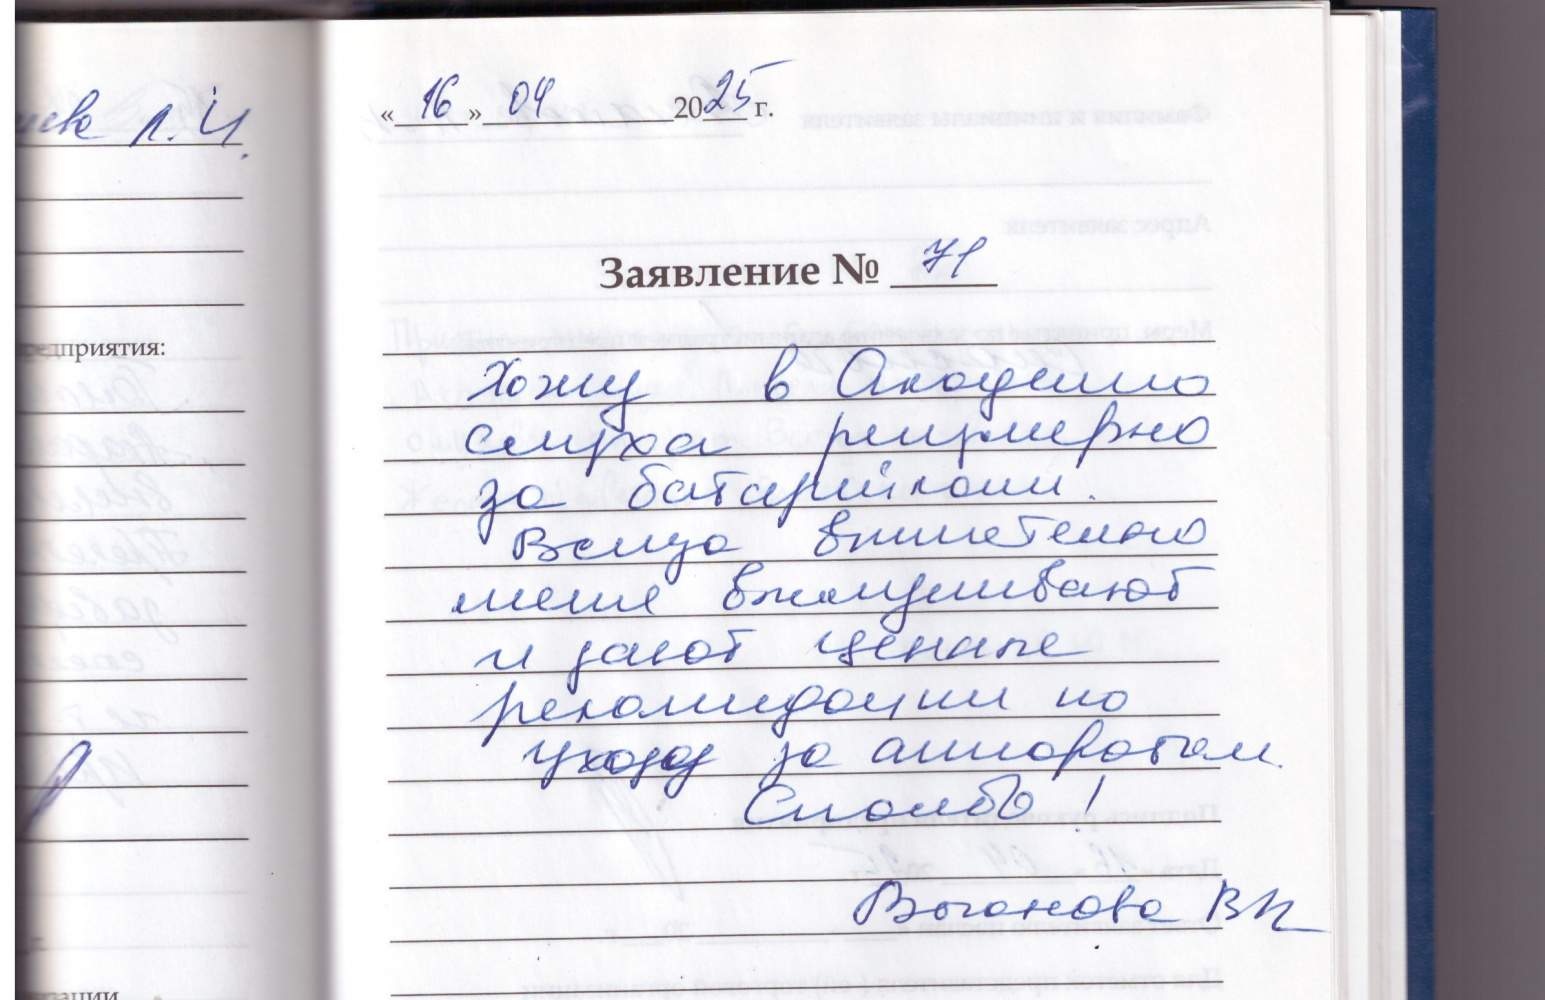 Л. И.
«16» 04 2025 г.
Заявление № 71
предприятия:
Хожу в Академию
слуха регулярно
за батарейками.
Всегда внимательно
меня выслушивают
и дают ценные
рекомендации по
уходу за аппаратом.
Спасибо!